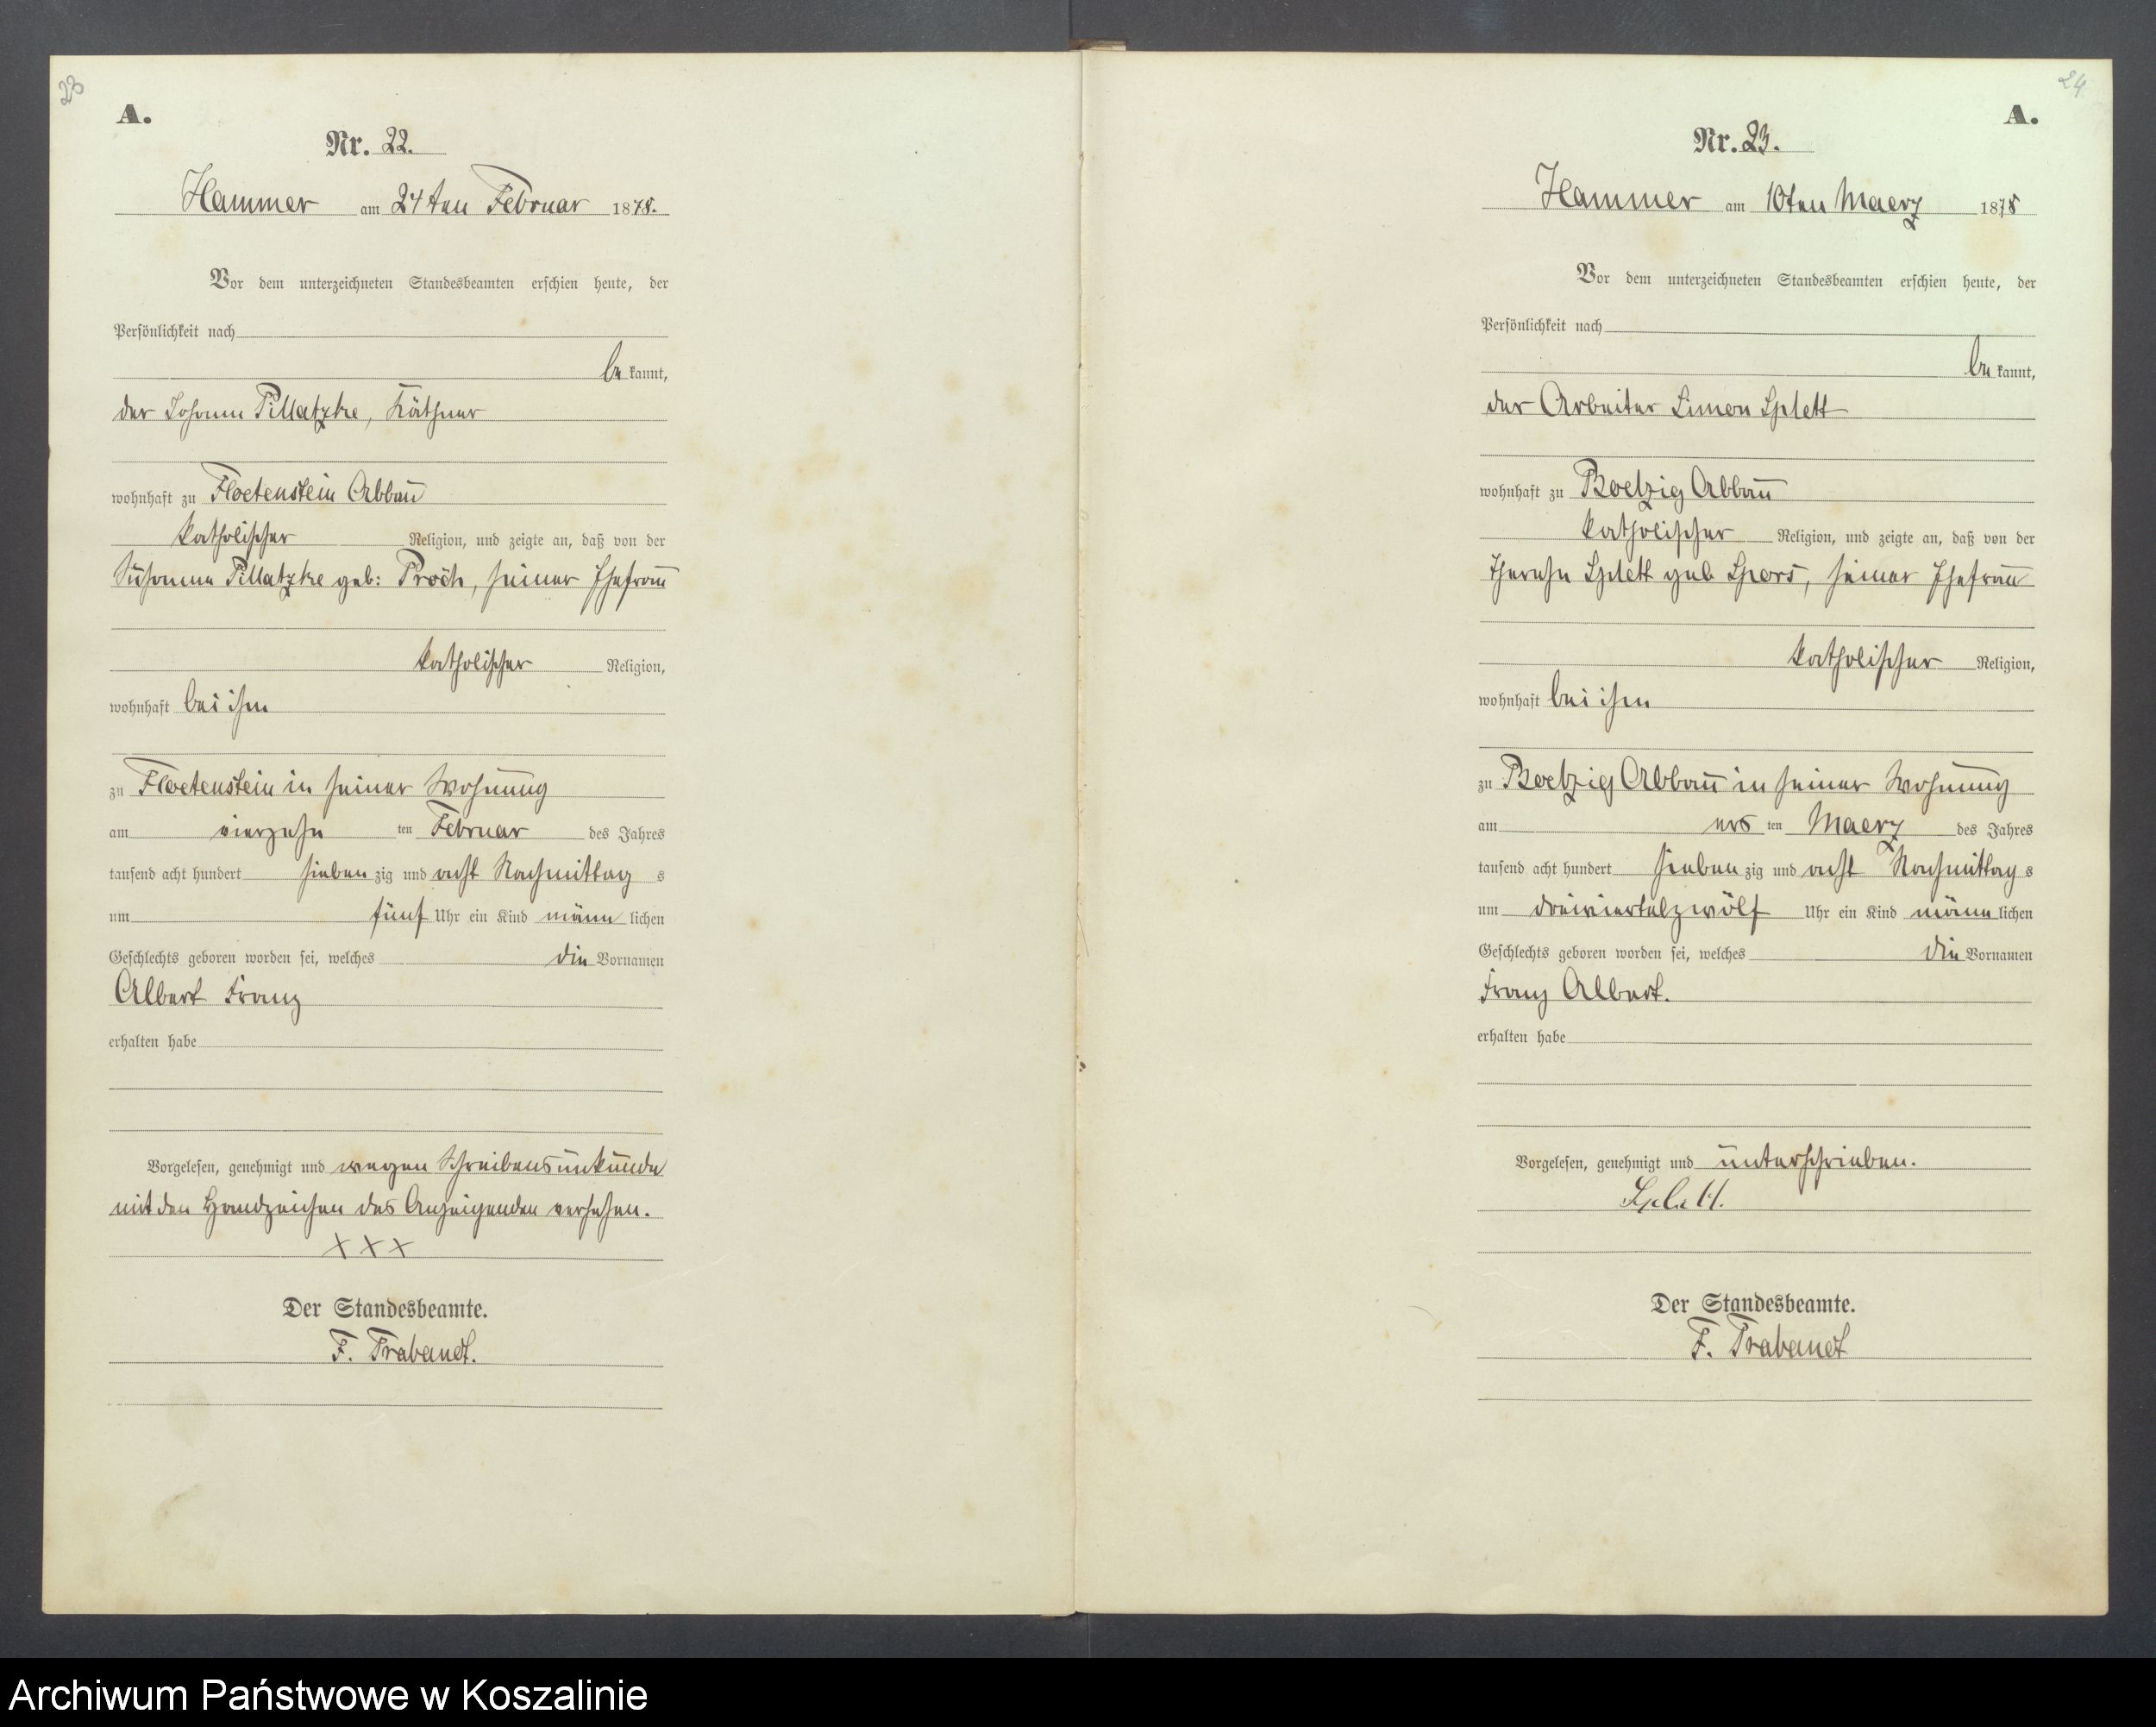 23
A.
Nr. 22.
Hammer am 24ten Februar 1878.
Vor dem unterzeichneten Standesbeamten erschien heute, der
Persönlichkeit nach
be kannt,
der Johann Pillatzke, Käthner
wohnhaft zu Floetenstein Abbau
katholischer Religion, und zeigte an, daß von der
Susanna Pillatzke geb: Proch, seiner Ehefrau
katholischer Religion,
wohnhaft bei ihm
zu Floetenstein in seiner Wohnung
am vierzehn ten Februar des Jahres
tausend acht hundert sieben zig und acht Nachmittag s
um fünf Uhr ein Kind männ lichen
Geschlechts geboren worden sei, welches die Vornamen
Albert Franz
erhalten habe
Vorgelesen, genehmigt und wegen Schreibensunkunde
mit den Handzeichen des Anzeigenden versehen.
XXX
Der Standesbeamte.
F. Trabandt.
24
A.
Nr. 23.
Hammer am 10ten Maerz 1878
Vor dem unterzeichneten Standesbeamten erschien heute, der
Persönlichkeit nach
be kannt,
der Arbeiter Simon Splett
wohnhaft zu Boelzig Abbau
katholischer Religion, und zeigte an, daß von der
Therese Splett geb Spors, seiner Ehefrau
katholischer Religion,
wohnhaft bei ihm
zu Boelzig Abbau in seiner Wohnung
am ers ten Maerz des Jahres
tausend acht hundert sieben zig und acht Nachmittag s
um dreiviertelzwölf Uhr ein Kind männ lichen
Geschlechts geboren worden sei, welches die Vornamen
Franz Albert.
erhalten habe
Vorgelesen, genehmigt und unterschrieben.
Splett.
Der Standesbeamte.
F. Trabandt
Archiwum Państwowe w Koszalinie